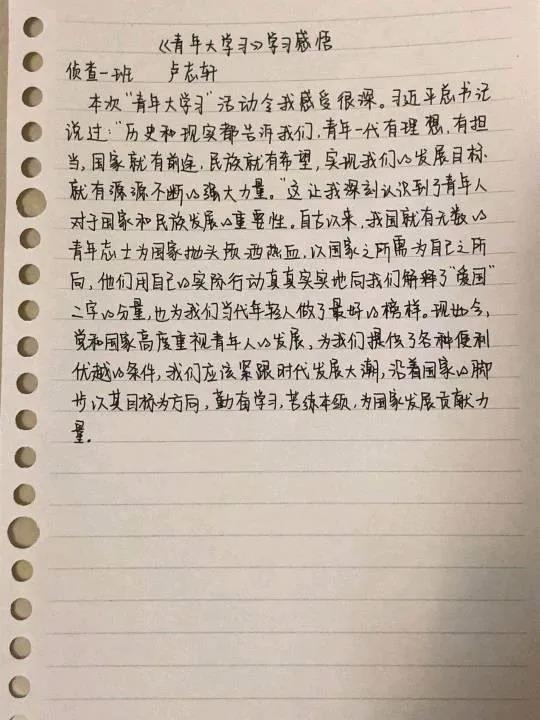 《青年大学习》学习感悟
侦查一班 卢志轩
本次“青年大学习”活动令我感受很深。习近平总书记
说过:“历史和现实都告诉我们,青年一代有理想,有担
当,国家就有前途,民族就有希望,实现我们的发展目标
就有源源不断的强大力量。”这让我深刻认识到了青年人
对于国家和民族发展的重要性。自古以来,我国就有无数的
青年志士为国家抛头颅洒热血,以国家之所需为自己之所
向,他们用自己的实际行动真真实实地向我们解释了“爱国”
二字的分量,也为我们当代年轻人做了最好的榜样。现如今,
党和国家高度重视青年人的发展,为我们提供了各种便利
优越的条件,我们应该紧跟时代发展大潮,沿着国家的脚
步以其目标为方向,勤奋学习,苦练本领,为国家发展贡献力
量。